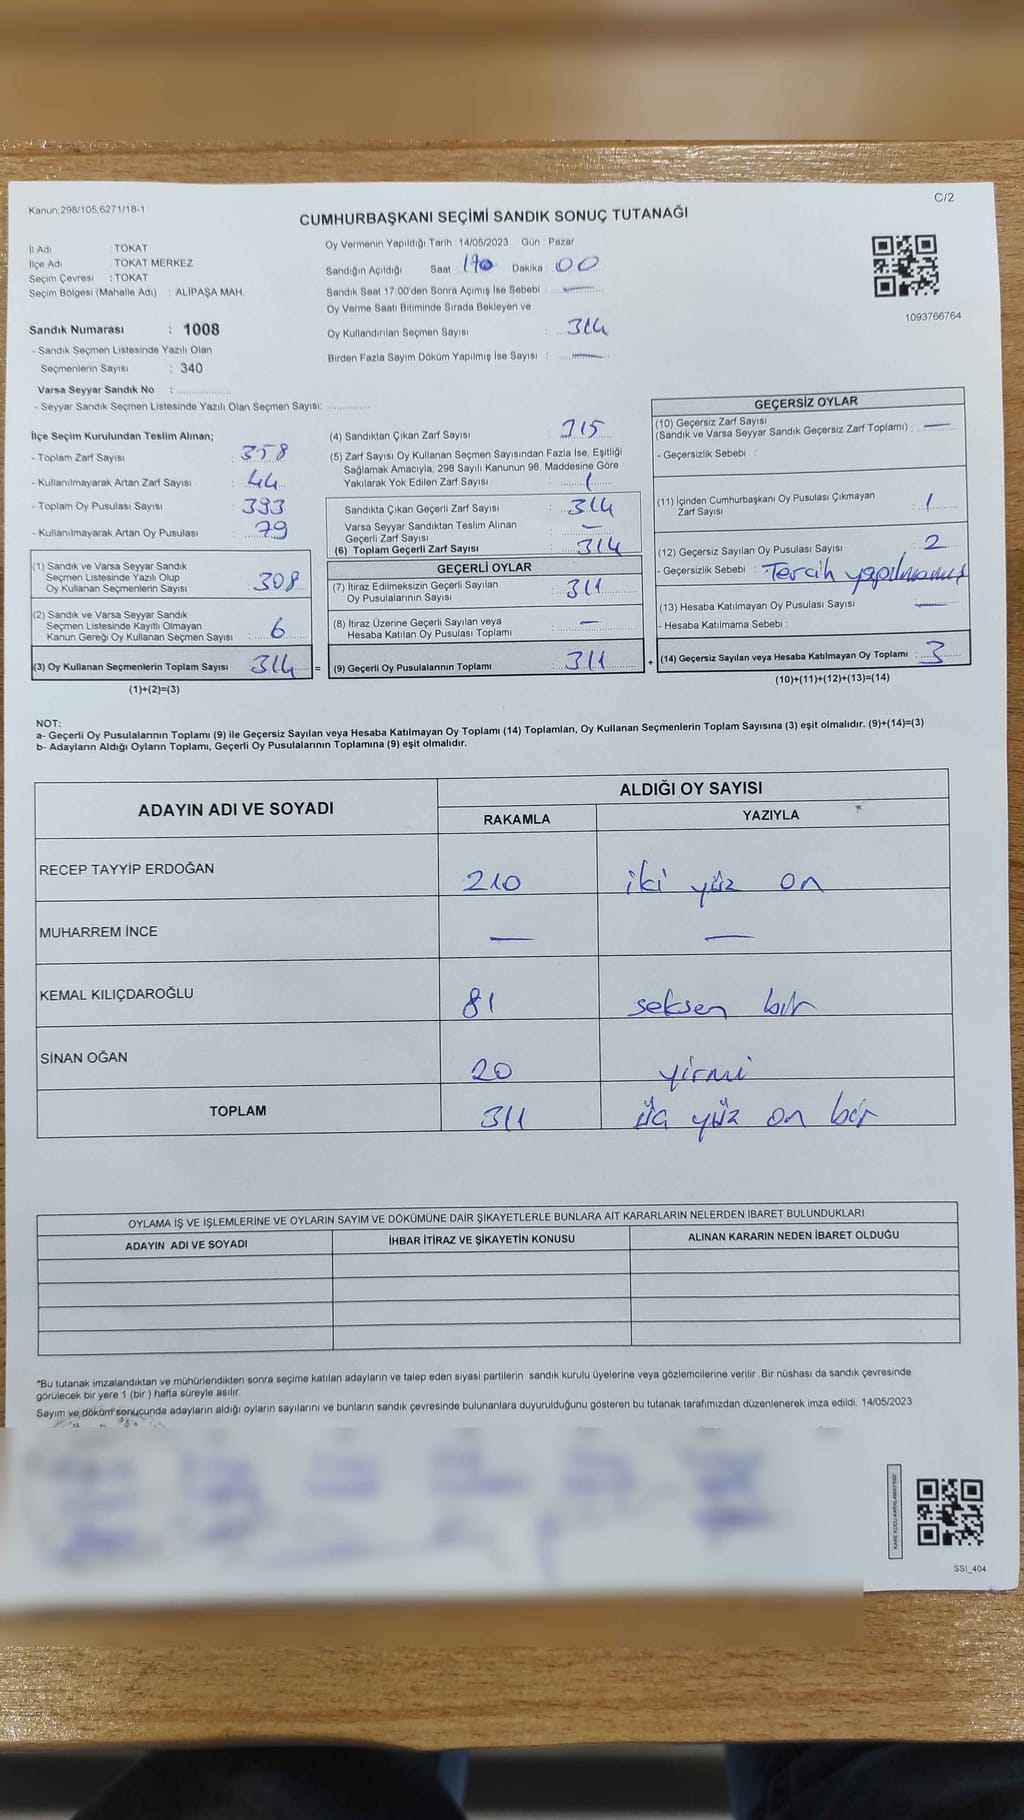 Kanun:298/105,6271/18-1
C/2
CUMHURBAŞKANI SEÇİMİ SANDIK SONUÇ TUTANAĞI
İl Adı : TOKAT
İlçe Adı : TOKAT MERKEZ
Seçim Çevresi : TOKAT
Seçim Bölgesi (Mahalle Adı) : ALİPAŞA MAH.
Sandık Numarası : 1008
- Sandık Seçmen Listesinde Yazılı Olan
Seçmenlerin Sayısı : 340
Varsa Seyyar Sandık No :
- Seyyar Sandık Seçmen Listesinde Yazılı Olan Seçmen Sayısı:
Oy Vermenin Yapıldığı Tarih : 14/05/2023 Gün : Pazar
Sandığın Açıldığı Saat : Dakika : 00
Sandık Saat 17:00'den Sonra Açımış İse Sebebi : —
Oy Verme Saati Bitiminde Sırada Bekleyen ve
Oy Kullandırılan Seçmen Sayısı : 314
Birden Fazla Sayım Döküm Yapılmış İse Sayısı : —
1093766764
İlçe Seçim Kurulundan Teslim Alınan;
- Toplam Zarf Sayısı : 358
- Kullanılmayarak Artan Zarf Sayısı : 44
- Toplam Oy Pusulası Sayısı : 393
- Kullanılmayarak Artan Oy Pusulası : 79
(1) Sandık ve Varsa Seyyar Sandık
Seçmen Listesinde Yazılı Olup
Oy Kullanan Seçmenlerin Sayısı : 308
(2) Sandık ve Varsa Seyyar Sandık
Seçmen Listesinde Kayıtlı Olmayan
Kanun Gereği Oy Kullanan Seçmen Sayısı : 6
(3) Oy Kullanan Seçmenlerin Toplam Sayısı : 314
(1)+(2)=(3)
(4) Sandıktan Çıkan Zarf Sayısı : 315
(5) Zarf Sayısı Oy Kullanan Seçmen Sayısından Fazla İse, Eşitliği
Sağlamak Amacıyla; 298 Sayılı Kanunun 98. Maddesine Göre
Yakılarak Yok Edilen Zarf Sayısı : 1
Sandıkta Çıkan Geçerli Zarf Sayısı : 314
Varsa Seyyar Sandıktan Teslim Alınan
Geçerli Zarf Sayısı : —
(6) Toplam Geçerli Zarf Sayısı : 314
GEÇERLİ OYLAR
(7) İtiraz Edilmeksizin Geçerli Sayılan
Oy Pusulalarının Sayısı : 311
(8) İtiraz Üzerine Geçerli Sayılan veya
Hesaba Katılan Oy Pusulası Toplamı : —
= (9) Geçerli Oy Pusulalarının Toplamı : 311
GEÇERSİZ OYLAR
(10) Geçersiz Zarf Sayısı
(Sandık ve Varsa Seyyar Sandık Geçersiz Zarf Toplamı) : —
- Geçersizlik Sebebi :
(11) İçinden Cumhurbaşkanı Oy Pusulası Çıkmayan
Zarf Sayısı : 1
(12) Geçersiz Sayılan Oy Pusulası Sayısı : 2
- Geçersizlik Sebebi : Tercih yapılmamış
(13) Hesaba Katılmayan Oy Pusulası Sayısı : —
- Hesaba Katılmama Sebebi :
+ (14) Geçersiz Sayılan veya Hesaba Katılmayan Oy Toplamı : 3
(10)+(11)+(12)+(13)=(14)
NOT:
a- Geçerli Oy Pusulalarının Toplamı (9) ile Geçersiz Sayılan veya Hesaba Katılmayan Oy Toplamı (14) Toplamları, Oy Kullanan Seçmenlerin Toplam Sayısına (3) eşit olmalıdır. (9)+(14)=(3)
b- Adayların Aldığı Oyların Toplamı, Geçerli Oy Pusulalarının Toplamına (9) eşit olmalıdır.
ADAYIN ADI VE SOYADI
ALDIĞI OY SAYISI
RAKAMLA YAZIYLA
RECEP TAYYİP ERDOĞAN 210 iki yüz on
MUHARREM İNCE — —
KEMAL KILIÇDAROĞLU 81 seksen bir
SİNAN OĞAN 20 yirmi
TOPLAM 311 üç yüz on bir
OYLAMA İŞ VE İŞLEMLERİNE VE OYLARIN SAYIM VE DÖKÜMÜNE DAİR ŞİKAYETLERLE BUNLARA AİT KARARLARIN NELERDEN İBARET BULUNDUKLARI
ADAYIN ADI VE SOYADI İHBAR İTİRAZ VE ŞİKAYETİN KONUSU ALINAN KARARIN NEDEN İBARET OLDUĞU
*Bu tutanak imzalandıktan ve mühürlendikten sonra seçime katılan adayların ve talep eden siyasi partilerin sandık kurulu üyelerine veya gözlemcilerine verilir. Bir nüshası da sandık çevresinde
görülecek bir yere 1 (bir ) hafta süreyle asılır.
Sayım ve döküm sonucunda adayların aldığı oyların sayılarını ve bunların sandık çevresinde bulunanlara duyurulduğunu gösteren bu tutanak tarafımızdan düzenlenerek imza edildi. 14/05/2023
SSI_404